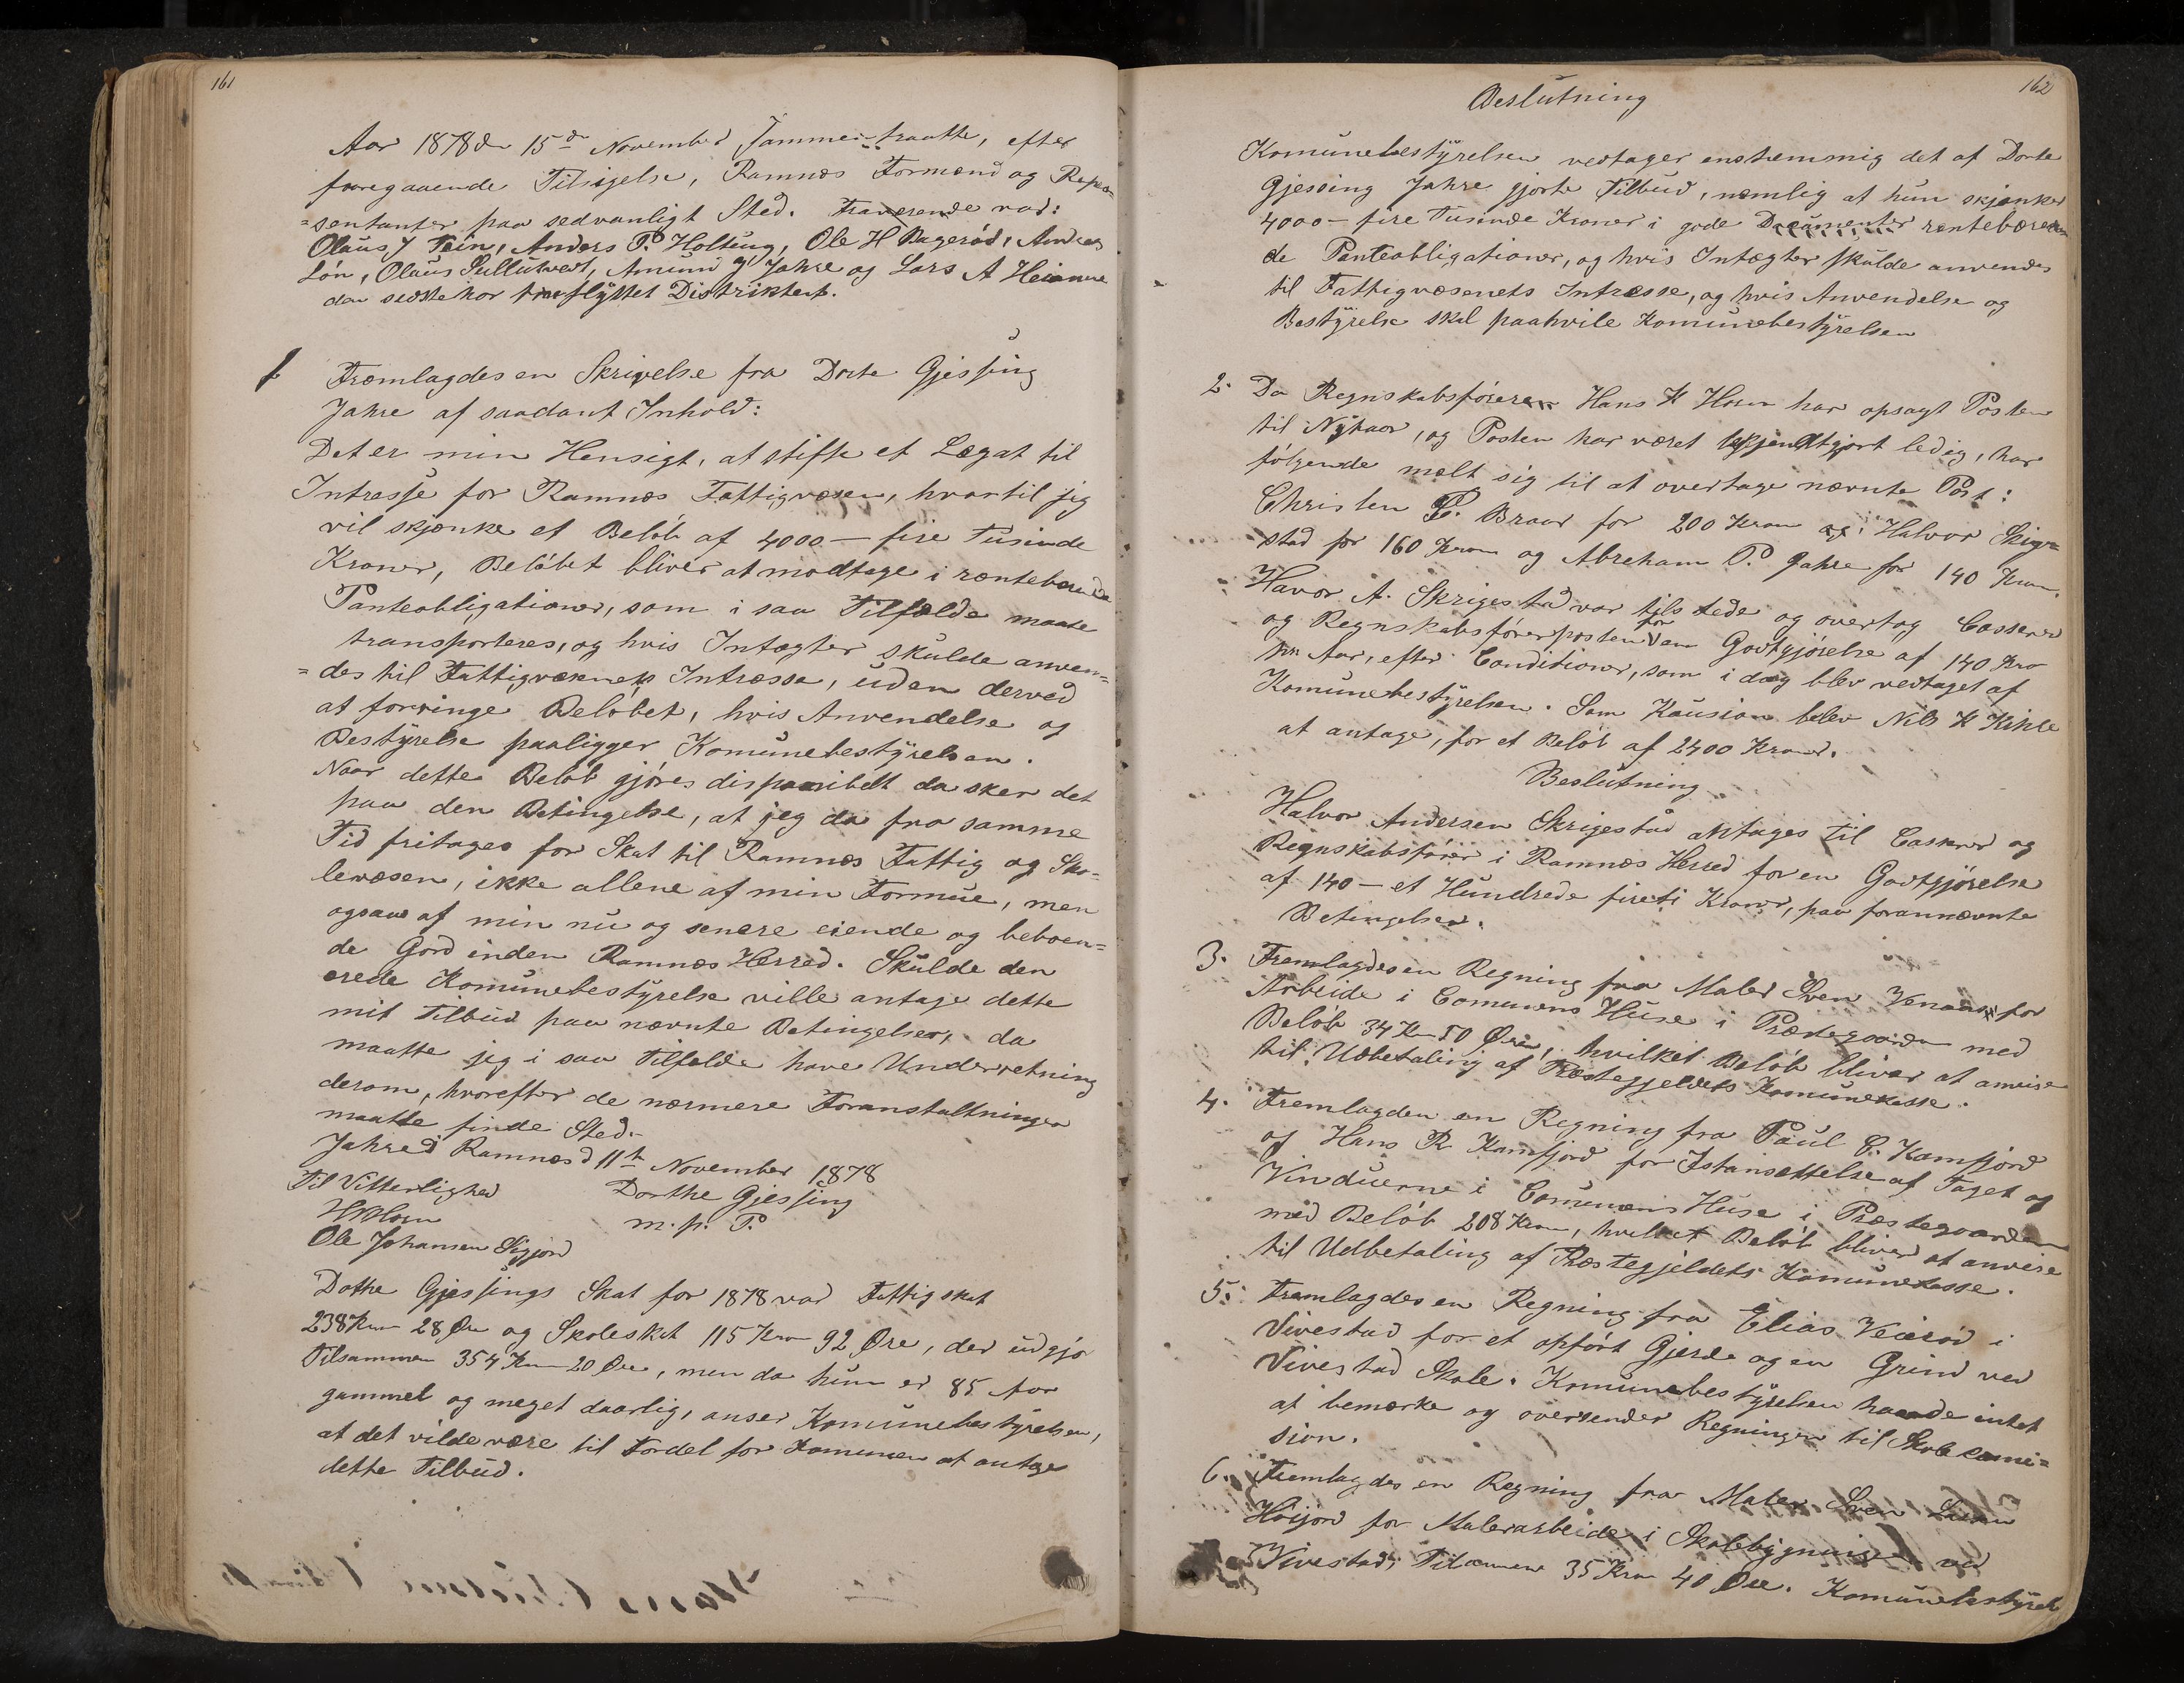 161
Aar 1878 den 15de November Sammentraatte, efter
foregaaende Tilsigelse, Ramnæs Formænd og Repræ=
=sentanter paa sedvanligt Sted. Fraværende var:
Olaus J Tein, Anders P. Holtung, Ole H Bagerød, Andreas
Løn, Olaus Sullutvedt, Amund G Jahre og Lars A Heian
den sidste har fraflyttet Distriktet.
1 Fremlagdes en Skrivelse fra Dorte Gjessing
Jahre af saadant Inhold:
Det er min Hensigt, at stifte et Legat til
Intresse for Ramnæs Fattigvæsen, hvortil jeg
vil skjænke et Beløb af 4000 – fire Tusinde
Kroner, Beløbet bliver at modtage i rentebærende
Panteobligationer, som i saa Tilfælde maate
transporteres, og hvis Intægter skulde anven=
=des til Fattigvæsnets Intresse, uden derved
at forringe Beløbet, hvis Anvendelse og
Bestyrelse paaligger Komunebestyrelsen.
Naar dette Beløb gjøres disponibelt da sker det
paa den Betingelse, at jeg da fra samme
Tid fritages for Skat til Ramnæs Fattig og Sko=
levæsen, ikke allene af min Formue, men
ogsaa af min nu og senere eiende og beboen=
de Gord inden Ramnæs Herred. Skulde den
ærede Komunebestyrelse ville antage dette
mit Tilbud paa nævnte Betingelser, da
maatte jeg i saa Tilfelde have Underretning
derom, hvorefter de nærmere Foranstaltninger
maatte finde Sted.
Jahre i Ramnæs d 11te November 1878
Til Vitterlighed Dorthe Gjessing
H K Horn m. p. P.
Ole Johansen Sigjord
Dothe Gjessings Skat for 1878 var Fattigskat
238 Kron 28 Øre og Skoleskat 115 Kron 92 Øre, der udgjør
Tilsammen 354 Kron 20 Øre, men da hun er 85 Aar
gammel og meget daarlig, anser Komunebestyrelsen,
at det vilde være til Fordel for Komunen at antage
dette Tilbud.
162
Beslutning
Komunebestyrelsen vedtager enstemmig det af Dorte
Gjessing Jahre gjorte Tilbud, nemlig at hun skjænker
4000 – fire Tusinde Kroner i gode Documenter renteberen
de Panteobligationer, og hvis Intægter skulde anvendes
til Fattigvæsenets Intresse, og hvis Anvendelse og
Bestyrelse skal paahvile Komunebestyrelsen
2. Da Regnskabsføreren Hans K Horn har opsagt Posten
til Nytaar, og Posten har været bekjendtgjort ledig, har
følgende mælt sig til at overtage nævnte Post:
Christen P. Braar for 200 Kron og Halvor Skige=
stad for 160 Kron og Abreham P. Jahre for 140 Kron.
Havor A. Skrigestad var tilstede og overtog Casserer
og Regnskabsførerposten for en Godtgjørelse af 140 Kro
pr. Aar, efter Conditioner, som i dag blev vedtaget af
Komunebestyrelsen. Som Kausion blev Nils K Kihle
at antage, for et Beløb af 2400 Kroner.
Beslutning
Halvor Andersen Skrigestad antages til Casserer og
Regnskabsfører i Ramnæs Herred for en Godtgjørelse
af 140 – et Hundrede firti Kroner, paa forannævnte
Betingelser.
3. Fremlagdes en Regning fra Maler Sven Venaas for
Arbeide i Comunens Huse i Præstegaarden med
Beløb 34 Kr 50 Øre, hvilket Beløb bliver at anvise
til Udbetaling af Præstegjeldets Komunekasse.
4. Fremlagdes en Regning fra Paul C. Kamfjord
og Hans R Kamfjord for Istansættelse af Taget og
Vinduerne i Comunens Huse i Præstegaarden
med Beløb 208 Kron, hvilket Beløb bliver at anvise
til Udbetaling af Præstegjeldets Komunekasse.
5. Fremlagdes en Regning fra Elias Veierød i
Vivestad for et opført Gjerde og en Grind ved
Vivestad Skole. Komunebestyrelsen havde intet
at bemærke og oversender Regningen til Skolecomi=
sion.
6. Fremlagdes en Regning fra Maler Sven Larsen
Høijord for Malerarbeide i Skolebygningen ved
Vivestad, Tilsammen 35 Kron 40 Øre. Komunebestyrel